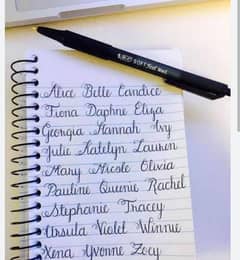 BIC SOFT Feel Med.
Alice Belle Candice
Fiona Daphne Eliza
Georgia Hannah Ivy
Julie Katelyn Lauren
Mary Nicole Olivia
Pauline Queenie Rachel
Stephanie Tracey
Ursula Violet Winnie
Xena Yvonne Zoey